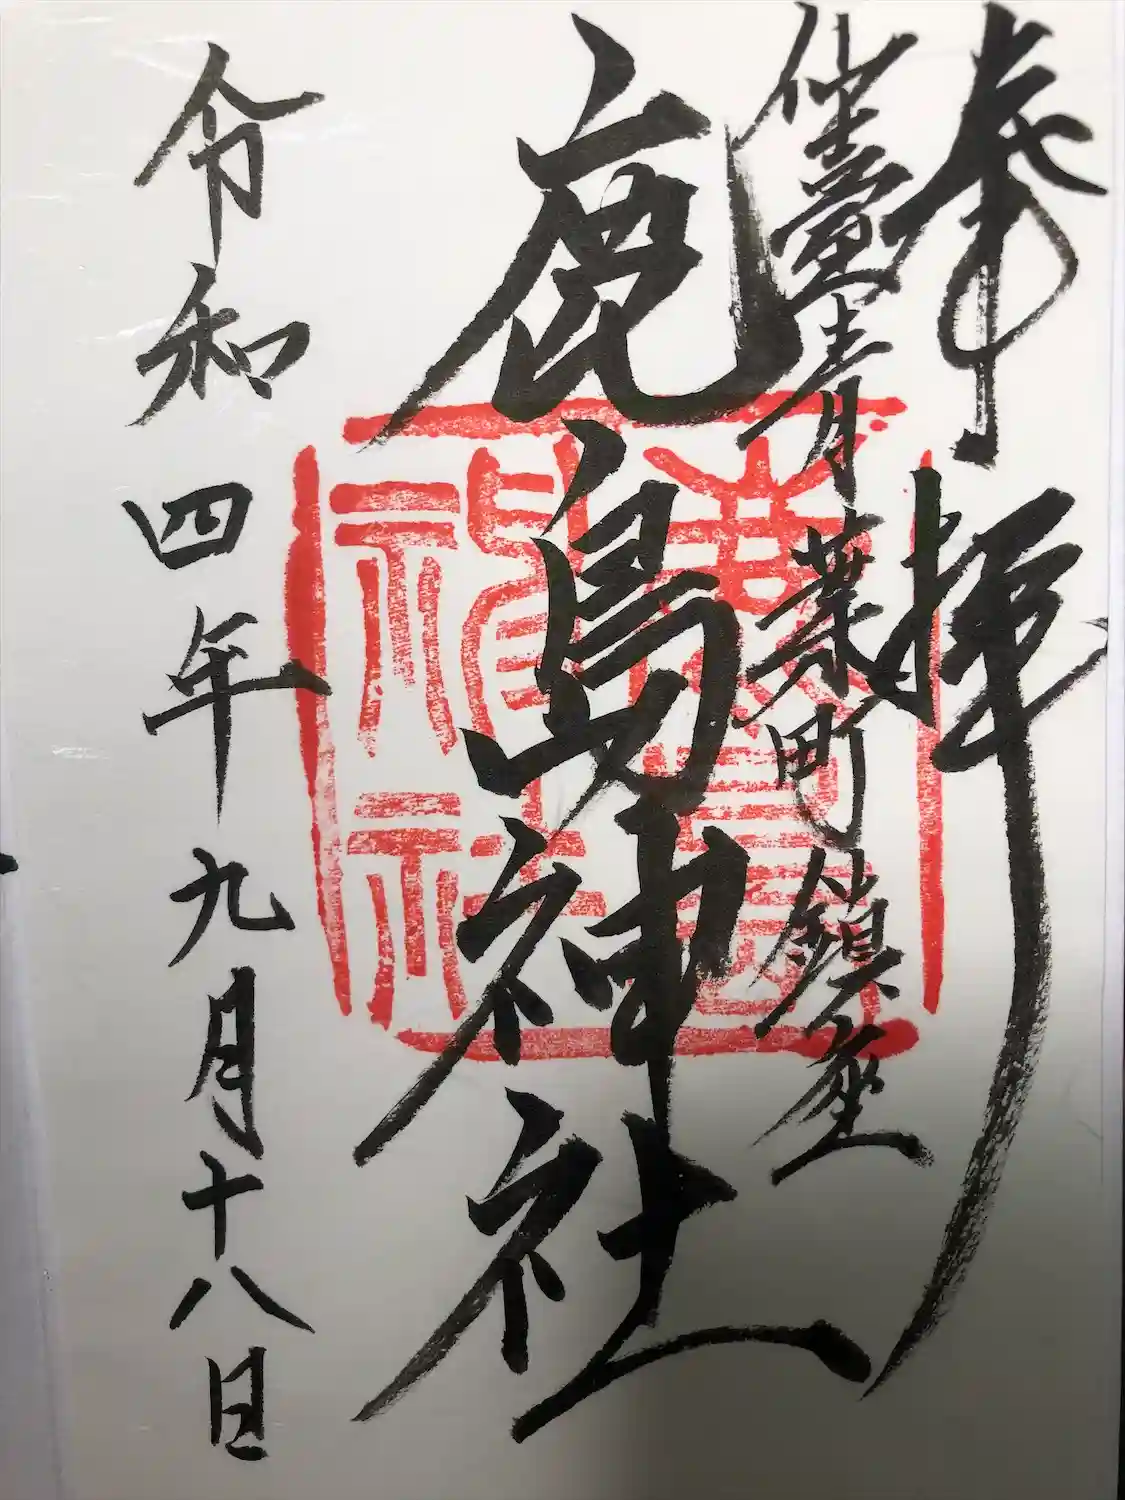 奉拝
仙臺青葉町鎮座
鹿島神社
令和四年九月十八日